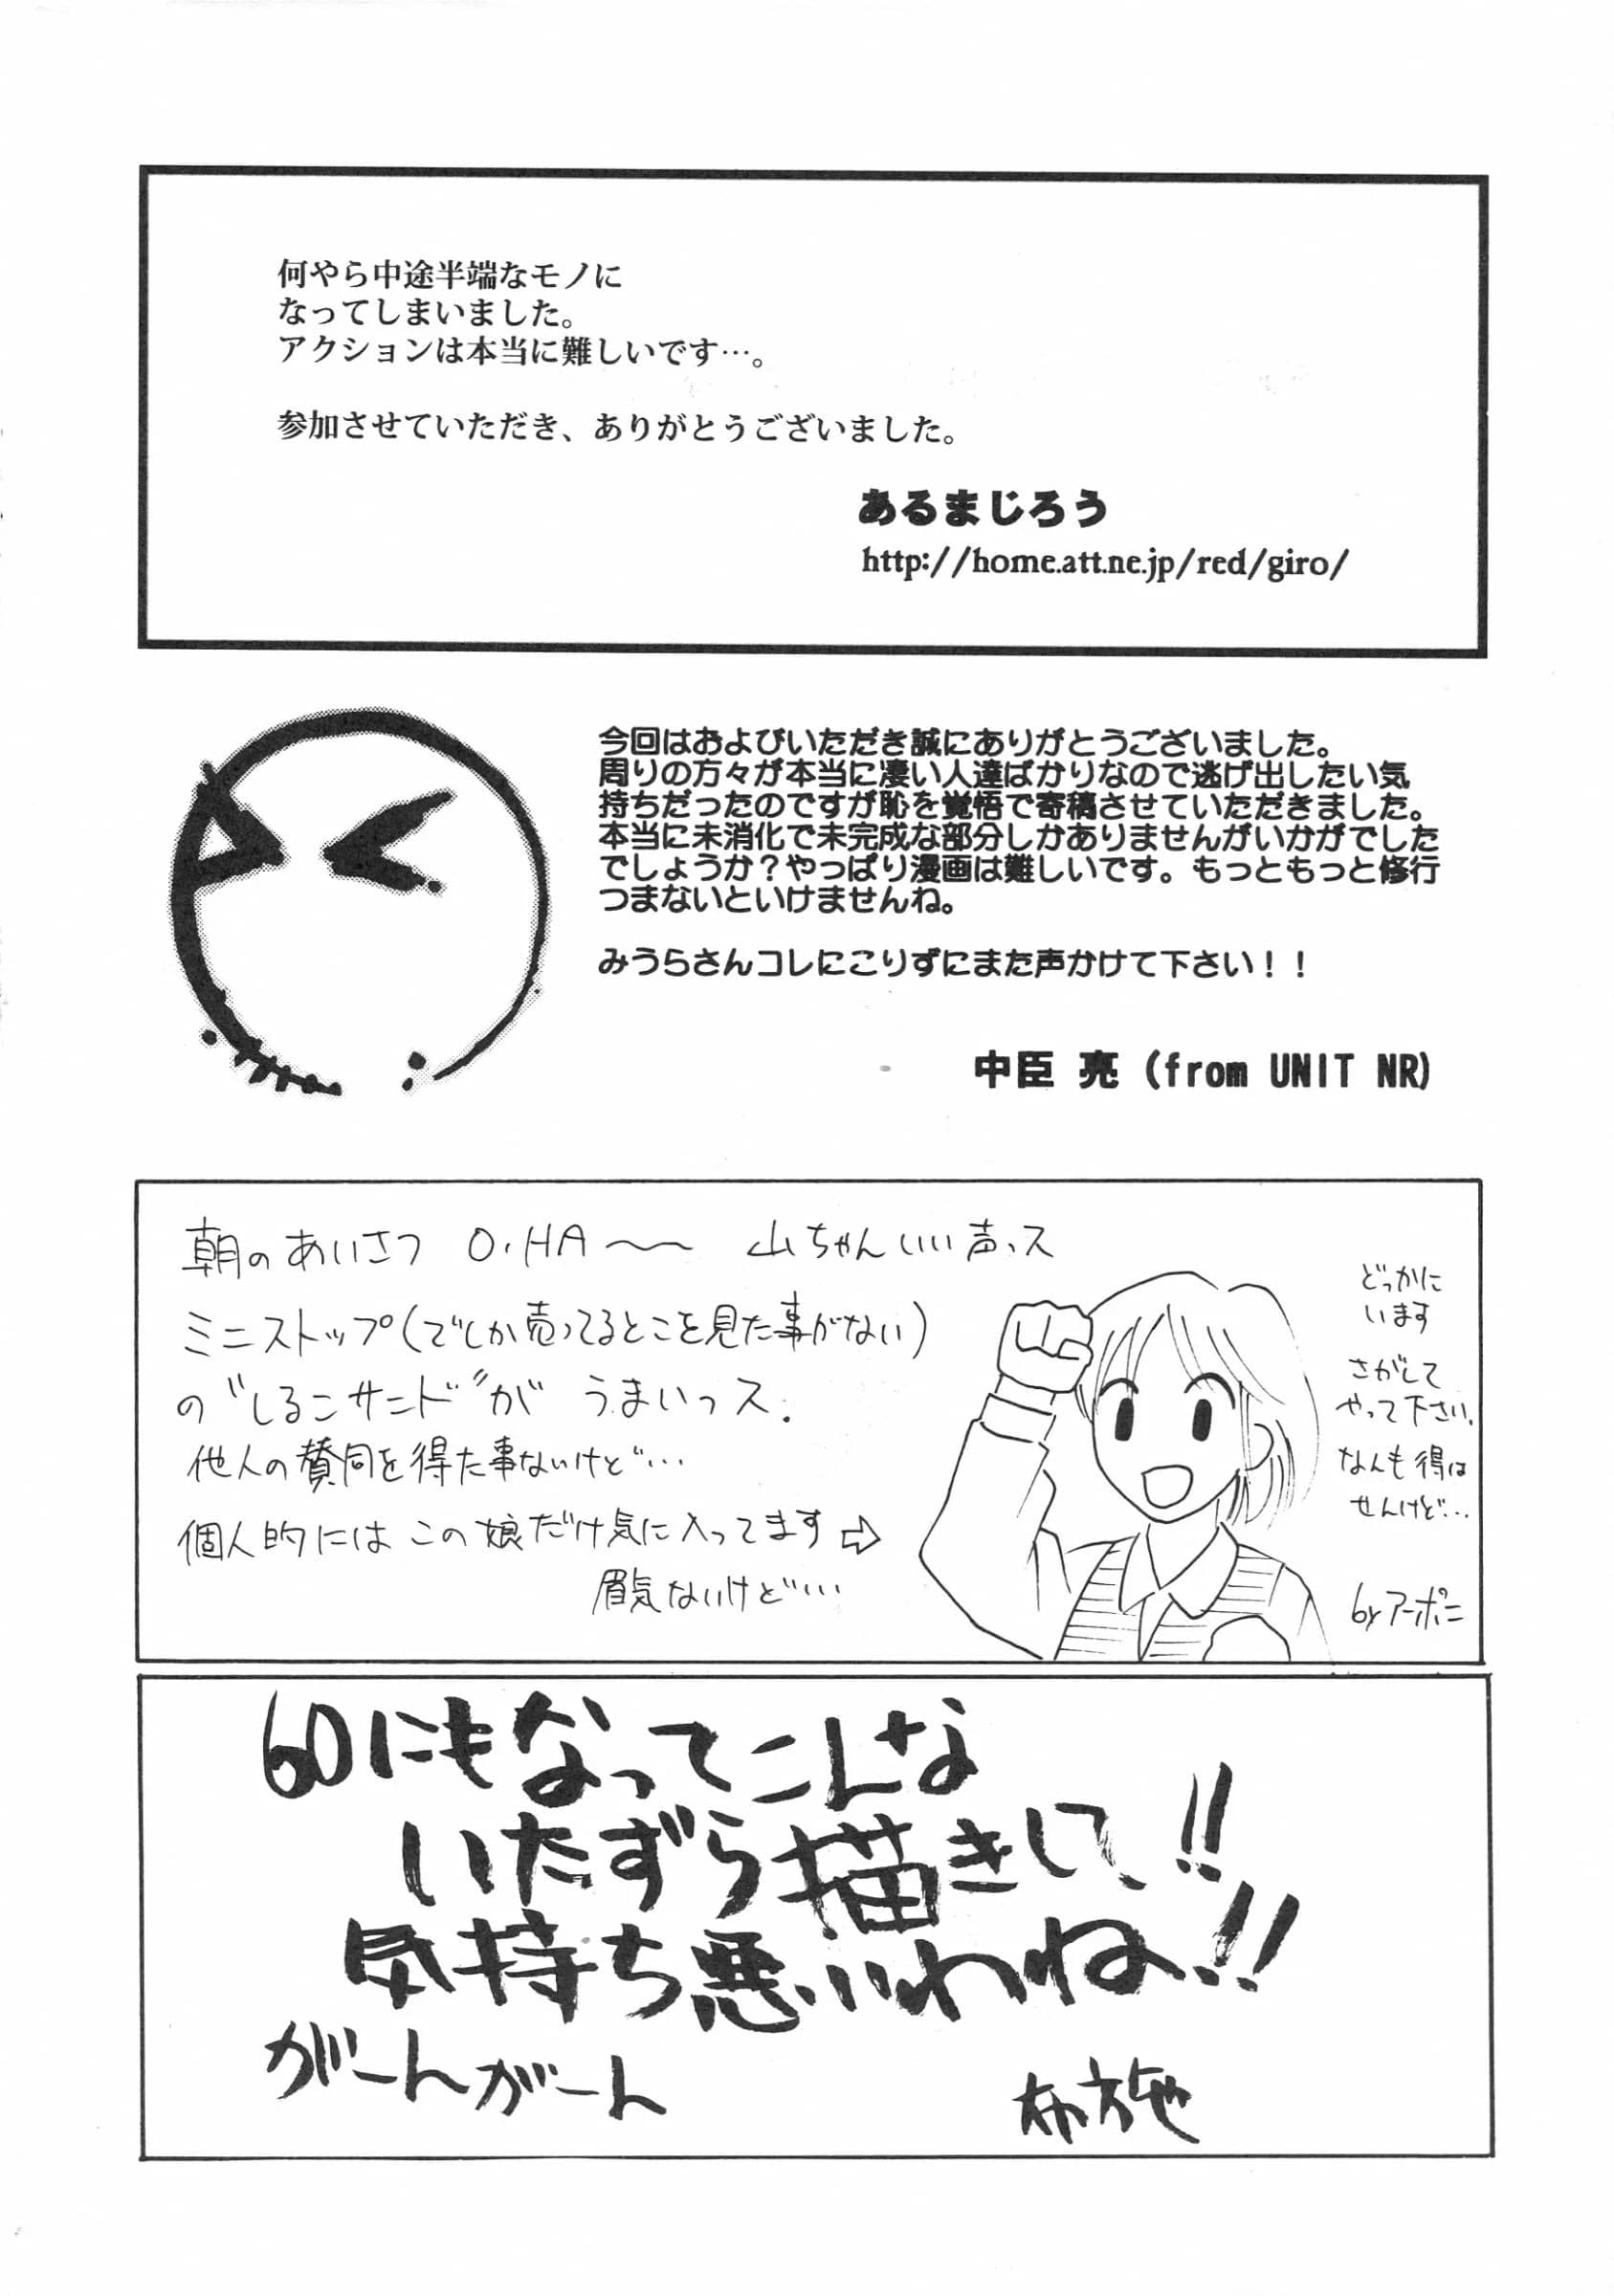 何やら中途半端なモノに
なってしまいました。
アクションは本当に難しいです…。
参加させていただき、ありがとうございました。
あるまじろう
http://home.att.ne.jp/red/giro/
今回はおよびいただき誠にありがとうございました。
周りの方々が本当に凄い人達ばかりなので逃げ出したい気
持ちだったのですが恥を覚悟で寄稿させていただきました。
本当に未消化で未完成な部分しかありませんがいかがでした
でしょうか？やっぱり漫画は難しいです。もっともっと修行
つまないといけませんね。
みうらさんコレにこりずにまた声かけて下さい！！
中臣 亮 (from UNIT NR)
朝のあいさつ O・HA〜〜 山ちゃんいい声っス
ミニストップ(でしか売ってるとこを見た事がない)
の"しるこサンド"が うまいっス.
他人の賛同を得た事ないけど…
個人的には この娘だけ気に入ってます⇨
眉気ないけど…
どっかに
います
さがして
やって下さい.
なんも得は
せんけど…
by アーポニ
60にもなってこんな
いたずら描きして、!!
気持ち悪いいわね、!!
がーんがーん
布施